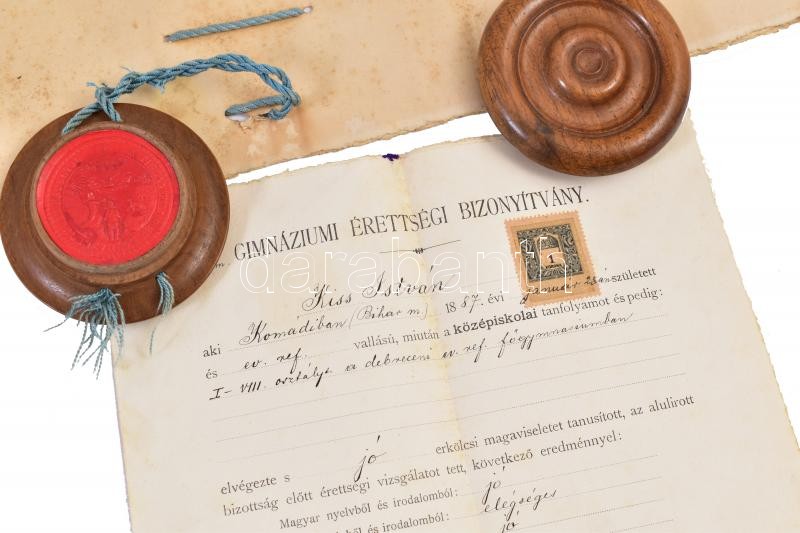 GIMNÁZIUMI ÉRETTSÉGI BIZONYÍTVÁNY.
1
Kiss István
aki Komádiban (Bihar m.) 1887. évi január 28 án született
és ev. ref. vallású, miután a középiskolai tanfolyamot és pedig:
I–VIII. osztályt a debreceni ev. ref. főgymnasiumban
elvégezte s jó erkölcsi magaviseletet tanusított, az alulirott
bizottság előtt érettségi vizsgálatot tett, következő eredménnyel:
Magyar nyelvből és irodalomból: jó
ből és irodalomból: elégséges
jó
darabanth